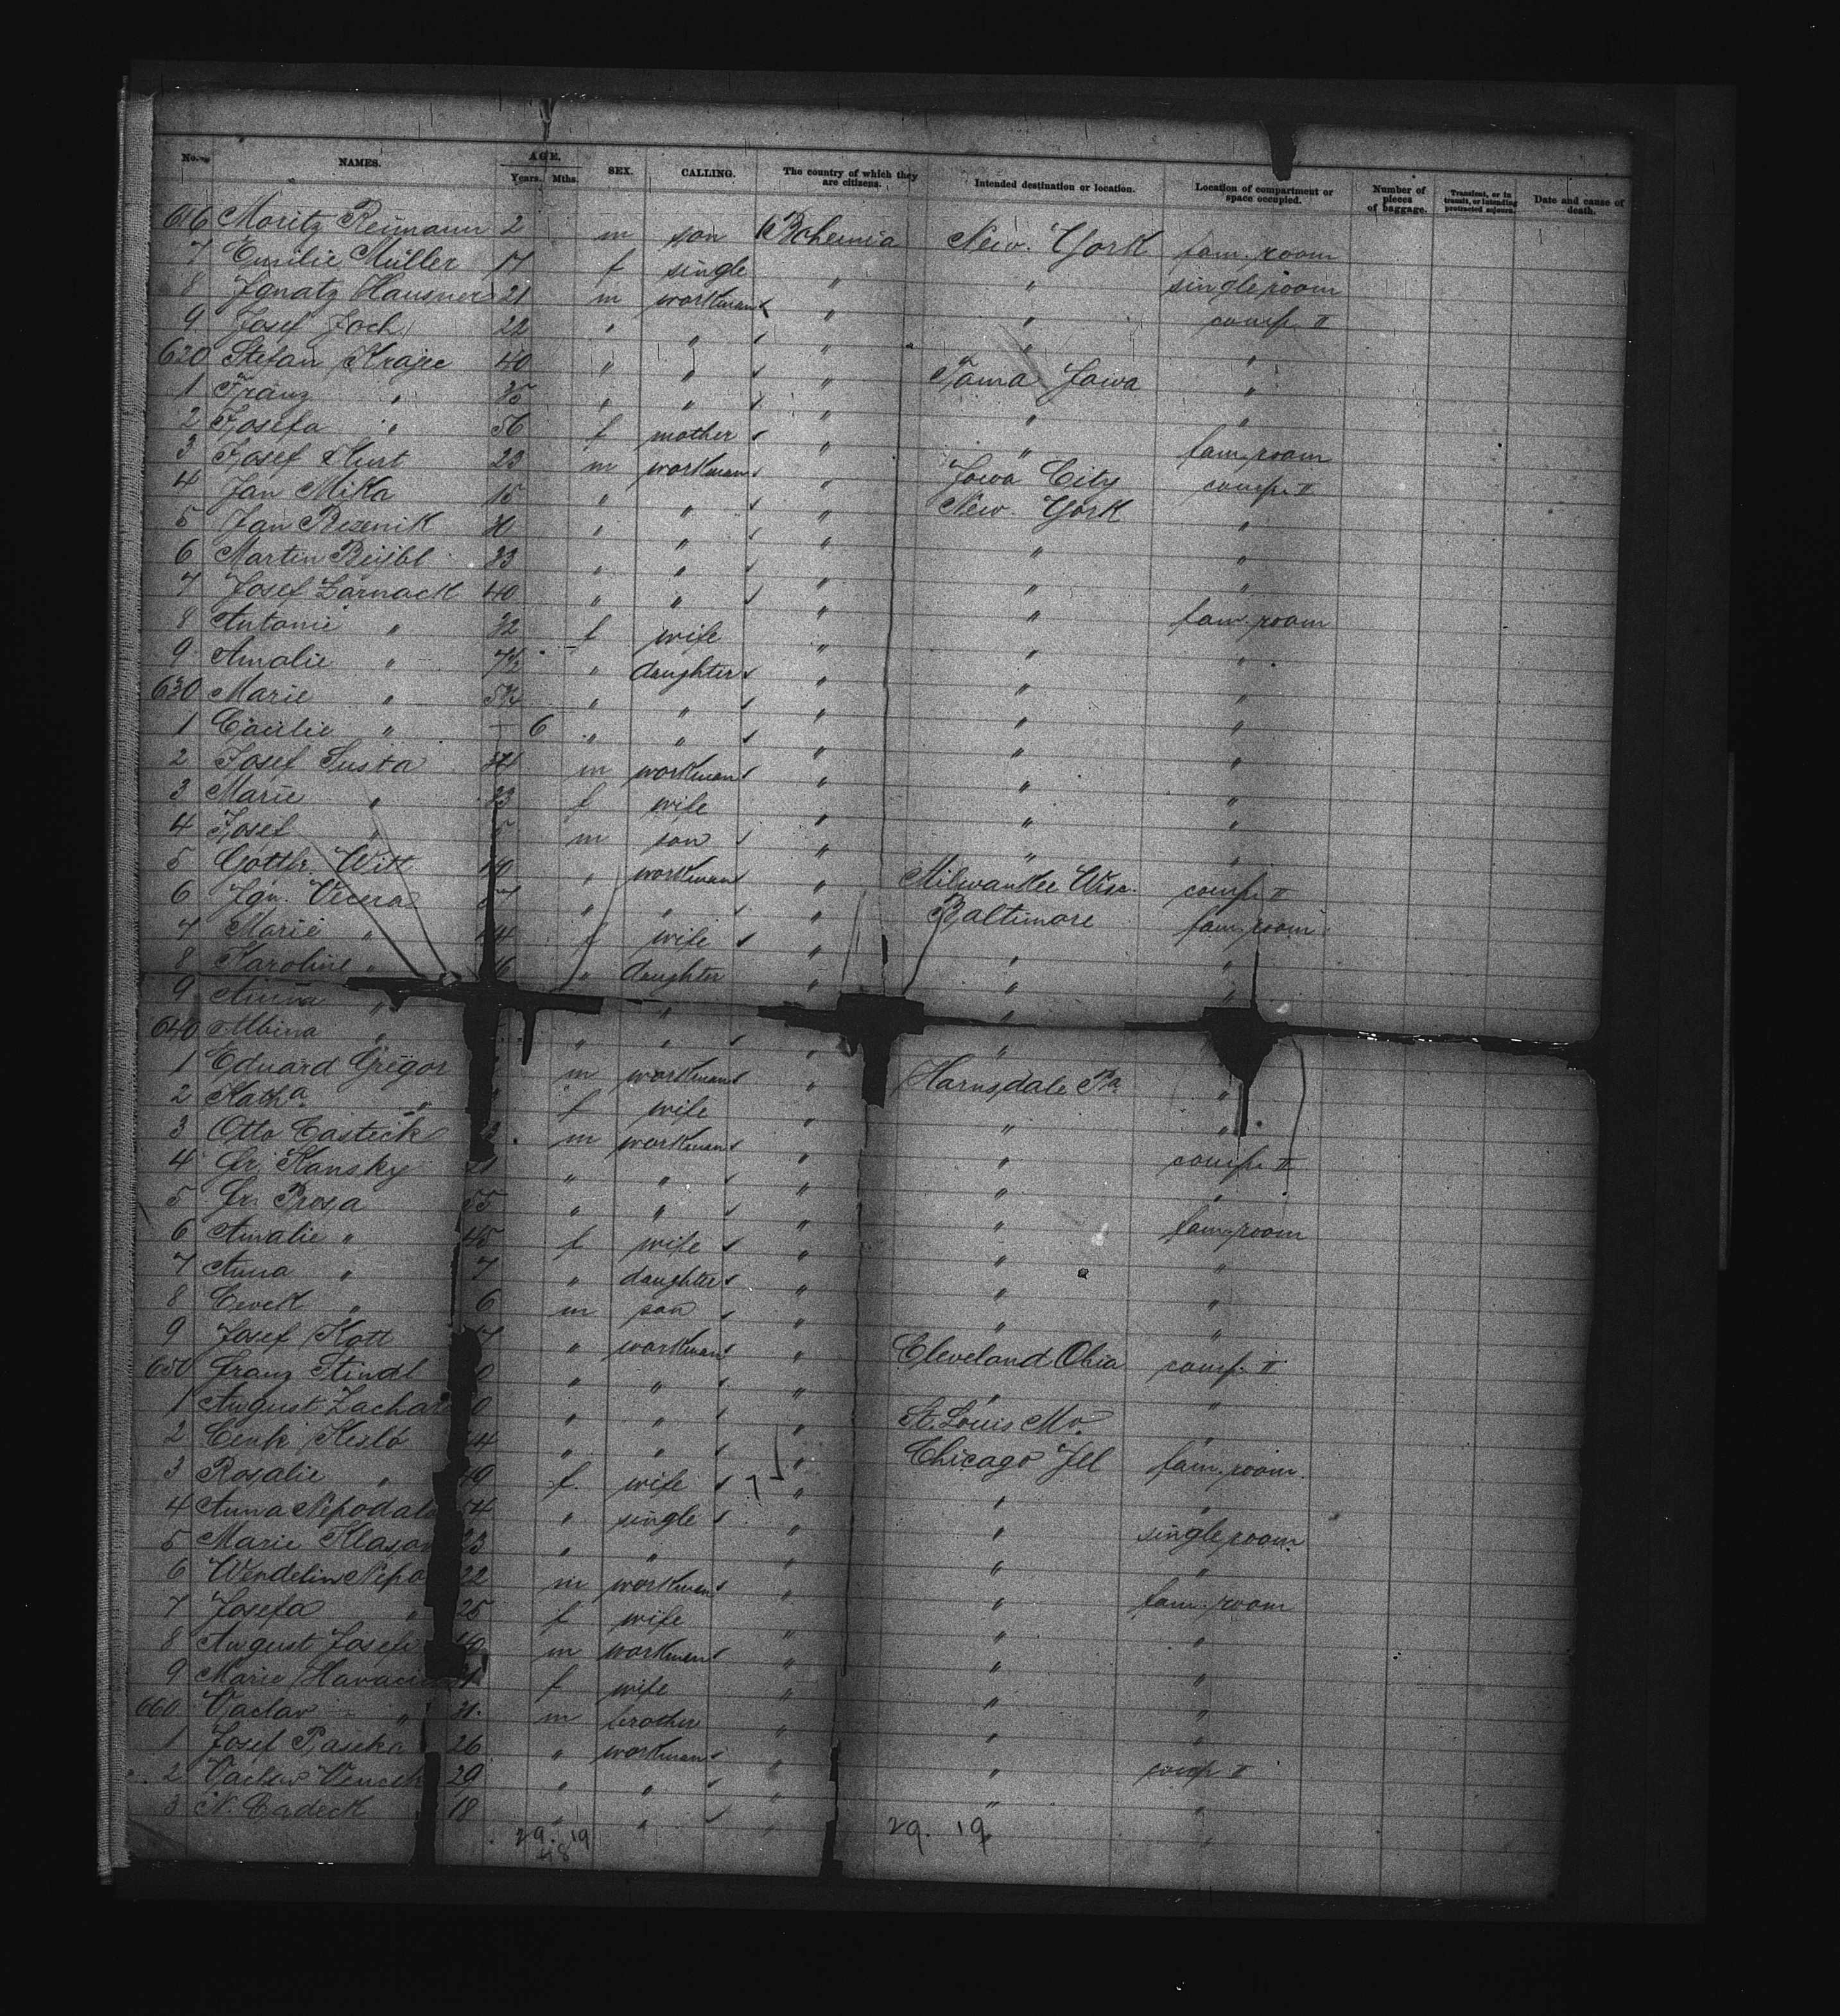 No. NAMES. AGE. Years. Mths. SEX. CALLING. The country of which they are citizens. Intended destination or location. Location of compartment or space occupied. Number of pieces of baggage. Transient, or in transit, or intending protracted sojourn. Date and cause of death.
616 Moritz Reimann 2 m son Bohemia New York fam. room
7 Emilie Müller 17 f single " " single room
8 Ignatz Hausner 21 m workman " " comp. II
9 Josef Joch 22 " " " " "
620 Stefan Krajic 40 " " " Tama Jowa "
1 Franz " 35 " " " " "
2 Josefa " 56 f mother " " fam. room
3 Josef Kurt 23 m workman " Jowa City comp. II
4 Jan Mika 15 " " " New York "
5 Jan Resenik " " " " "
6 Martin 23 " " " " "
7 Josef Zarnack 40 " " " " fam. room
8 Antonie " 32 f wife " " "
9 Amalie " 7½ " daughter " " "
630 Marie " " " " " "
1 Cäcilie " — 6 " " " " "
2 Josef Susta 34 m workman " " "
3 Marie " 33 f wife " " "
4 Josef " 5 m son " " "
5 Gottlr. Witt " workman " Milwaukee Wisc. comp. II
6 Ign. Vecera " " " Baltimore fam. room
7 Marie " f wife " " "
8 Karoline " " daughter " " "
9 Anna " " "
640 Albina " " " " "
1 Eduard Gregor m workman " Harnsdale Pa. "
2 Katha " f wife " " "
3 Otto Casteck m workman " " comp. II
4 Fr. Kansky 21 " " " " "
5 Fr. Prosa 55 " " " " fam. room
6 Amalie " 45 f wife " " "
7 Anna " 7 " daughter " " "
8 " 6 m son " " "
9 Josef Kott " workman " Cleveland Ohio comp. II
650 Franz Stindl " " " " "
1 August Zachar " " " St. Louis Mo. "
2 " " " Chicago Ill fam. room
3 Rosalie " 49 f. wife " " "
4 Anna Nepodal 54 " single " " single room
5 Marie Klasan 23 " " " " "
6 Wendelin Nepo 22 m workman " " fam. room
7 Josefa " 25 f wife " " "
8 August Josefe m workman " " "
9 Marie f wife " " "
660 Vaclav " 31 m brother " " "
1 Josef Paseka 26 " workman " " comp II
2 Vaclav 29 " " " " "
3 N. Cadeck 18 " " " " "
29. 19 29. 19
48